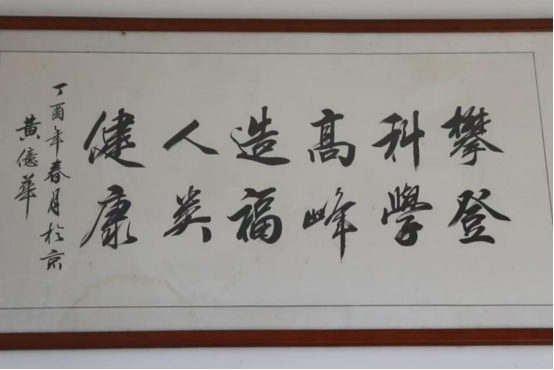 攀登
科學
高峰
造福
人类
健康
丁酉年春月於京
黄億華